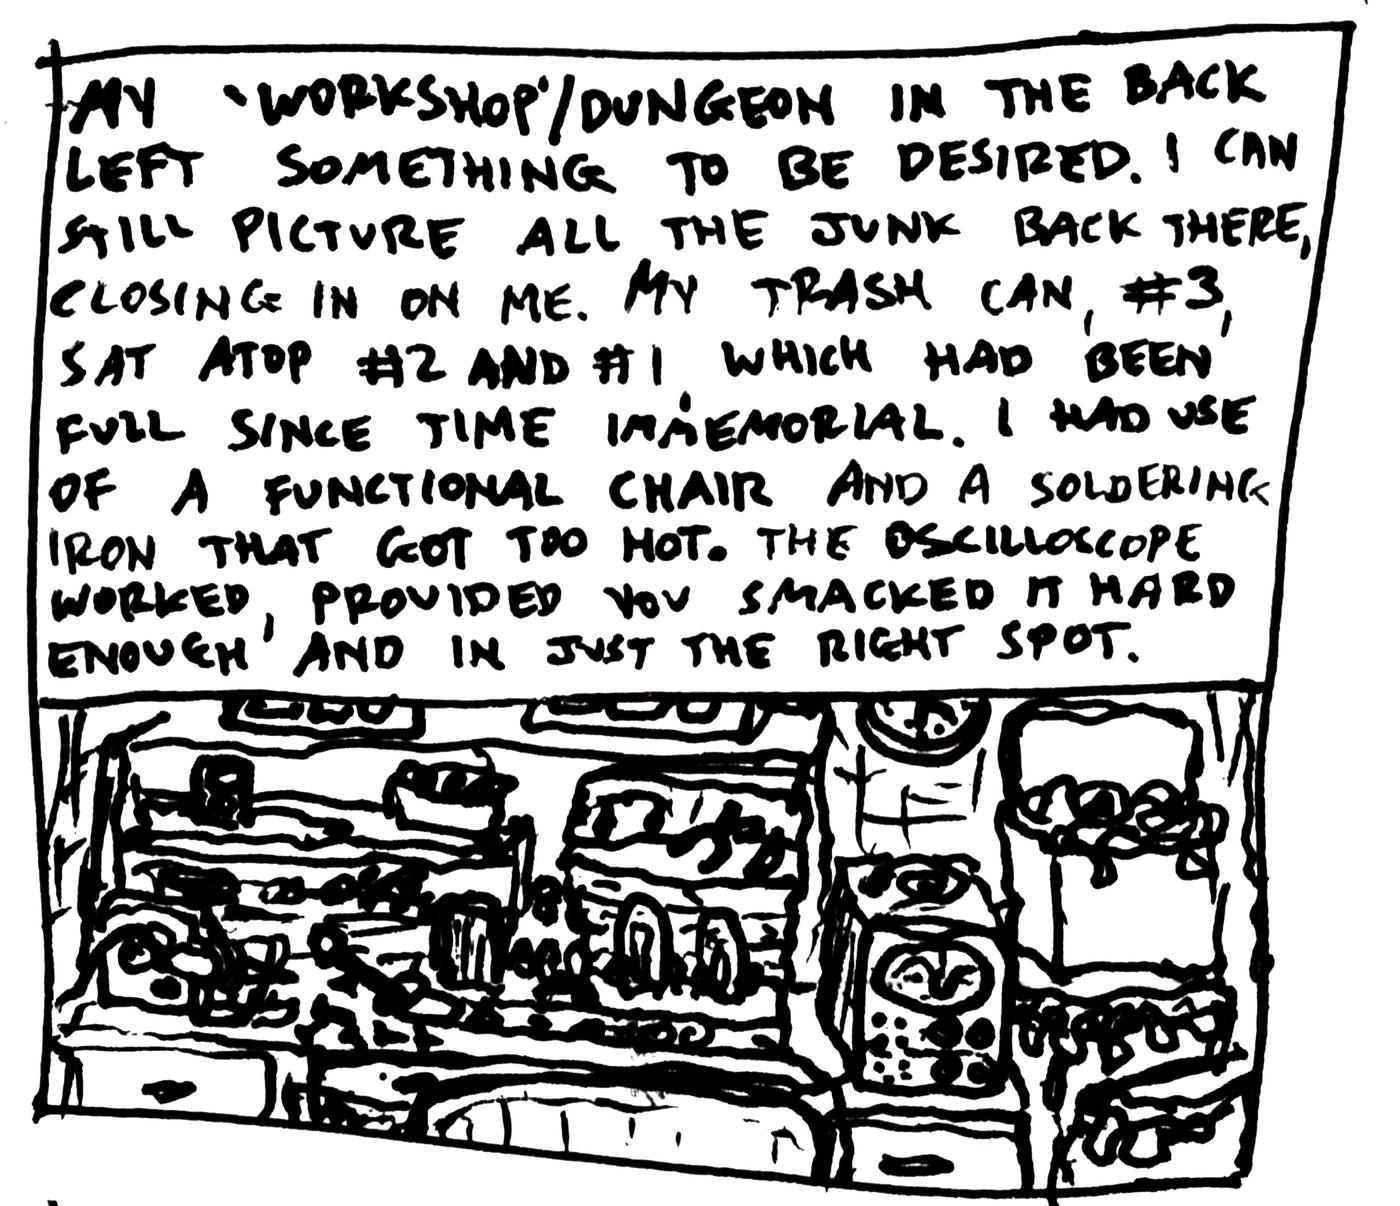 MY 'WORKSHOP'/DUNGEON IN THE BACK
LEFT SOMETHING TO BE DESIRED. I CAN
STILL PICTURE ALL THE JUNK BACK THERE,
CLOSING IN ON ME. MY TRASH CAN, #3,
SAT ATOP #2 AND #1, WHICH HAD BEEN
FULL SINCE TIME IMMEMORIAL. I HAD USE
OF A FUNCTIONAL CHAIR AND A SOLDERING
IRON THAT GOT TOO HOT. THE OSCILLOSCOPE
WORKED, PROVIDED YOU SMACKED IT HARD
ENOUGH AND IN JUST THE RIGHT SPOT.